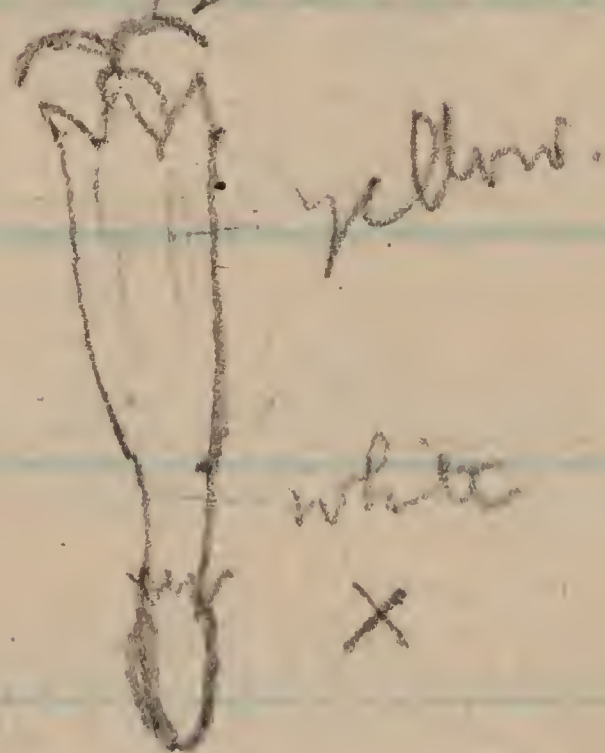 yellow.
white
X